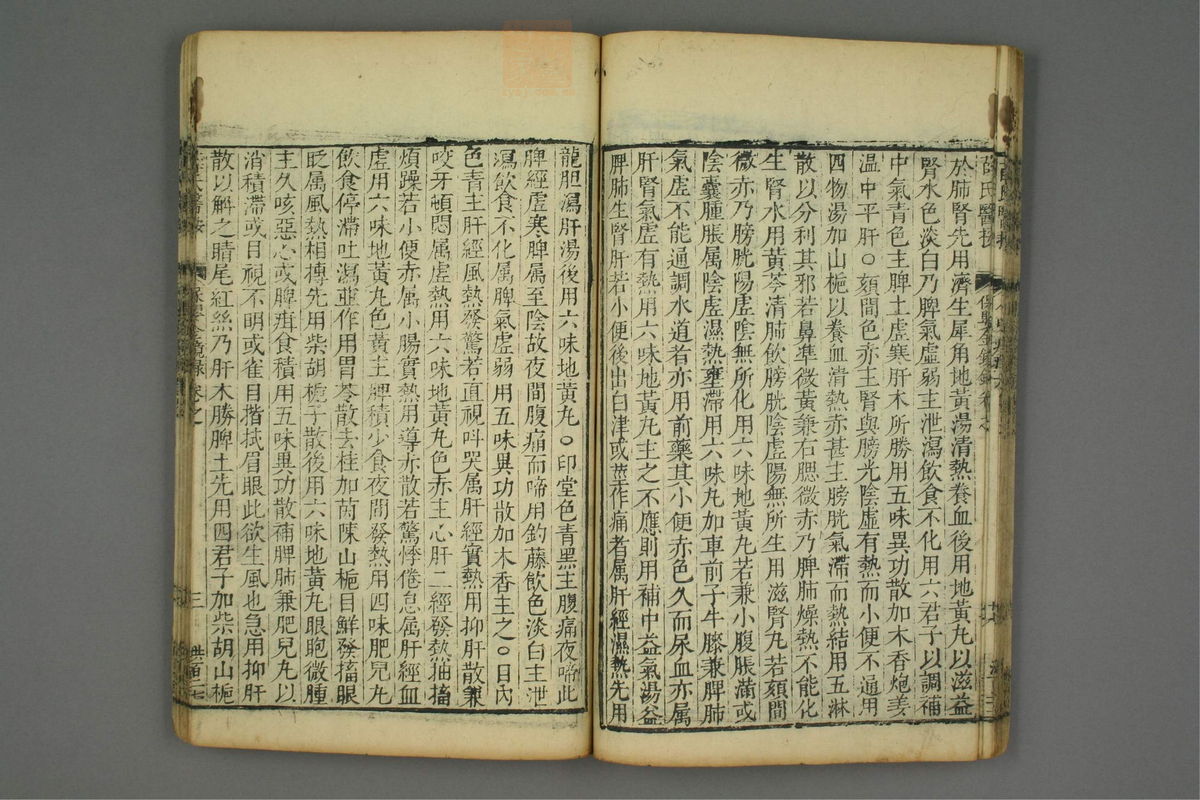 薛氏醫按
保嬰金鏡錄
於肺腎先用濟生犀角地黃湯清熱養血後用地黃丸以滋益
腎水色淡白乃脾氣虛弱主泄瀉飲食不化用六君子以調補
中氣青色主脾土虛寒肝木所勝用五味異功散加木香炮姜
溫中平肝○頦間色赤主腎與膀光陰虛有熱而小便不通用
四物湯加山梔以養血清熱赤甚主膀胱氣滯而熱結用五淋
散以分利其邪若鼻準微黃兼右腮微赤乃脾肺燥熱不能化
生腎水用黃芩清肺飲膀胱陰虛陽無所生用滋腎丸若頦間
微赤乃膀胱陽虛陰無所化用六味地黃丸若兼小腹脹滿或
陰囊腫脹属陰虛濕熱壅滯用六味丸加車前子牛膝兼脾肺
氣虛不能通調水道者亦用前藥其小便赤色久而尿血亦属
肝腎氣虛有熱用六味地黃丸主之不應則用補中益氣湯益
脾肺生腎肝若小便後出白津或莖作痛者属肝經濕熱先用
龍胆瀉肝湯後用六味地黃丸○印堂色青黑主腹痛夜啼此
脾經虛寒脾属至陰故夜間腹痛而啼用釣藤飲色淡白主泄
瀉飲食不化属脾氣虛弱用五味異功散加木香主之○目內
色青主肝經風熱發驚若直視呌哭属肝經實熱用抑肝散兼
咬牙頓悶属虛熱用六味地黃丸色赤主心肝二經發熱抽搐
煩躁若小便赤属小腸實熱用導赤散若驚悸倦怠属肝經血
虛用六味地黃丸色黃主脾積少食夜間發熱用四味肥兒丸
飲食停滯吐瀉並作用胃苓散去桂加茵陳山梔目鮮發搐眼
眨属風熱相搏先用柴胡梔子散後用六味地黃丸眼胞微腫
主久咳惡心或脾疳食積用五味異功散補脾肺兼肥兒丸以
消積滯或目視不明或雀目揩拭眉眼此欲生風也急用抑肝
散以解之睛尾紅絲乃肝木勝脾土先用四君子加柴胡山梔
薛氏醫按
保嬰金鏡錄 卷之
三